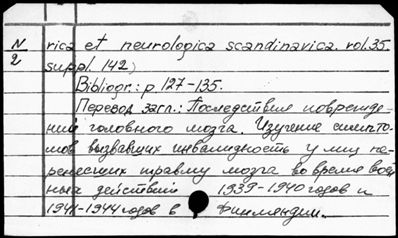 N/2 rica et neurologica scandinavica. vol. 35.
suppl. 142)
Bibliogr.: p. 127-135.
Перевод загл.: Последствия поврежде-
ний головного мозга. Изучение симпто-
мов вызвавших инвалидность у лиц пе-
ренесших травму мозга во время воен
ных действий 1939-1940 годов и
1941-1944 годов в Финляндии.